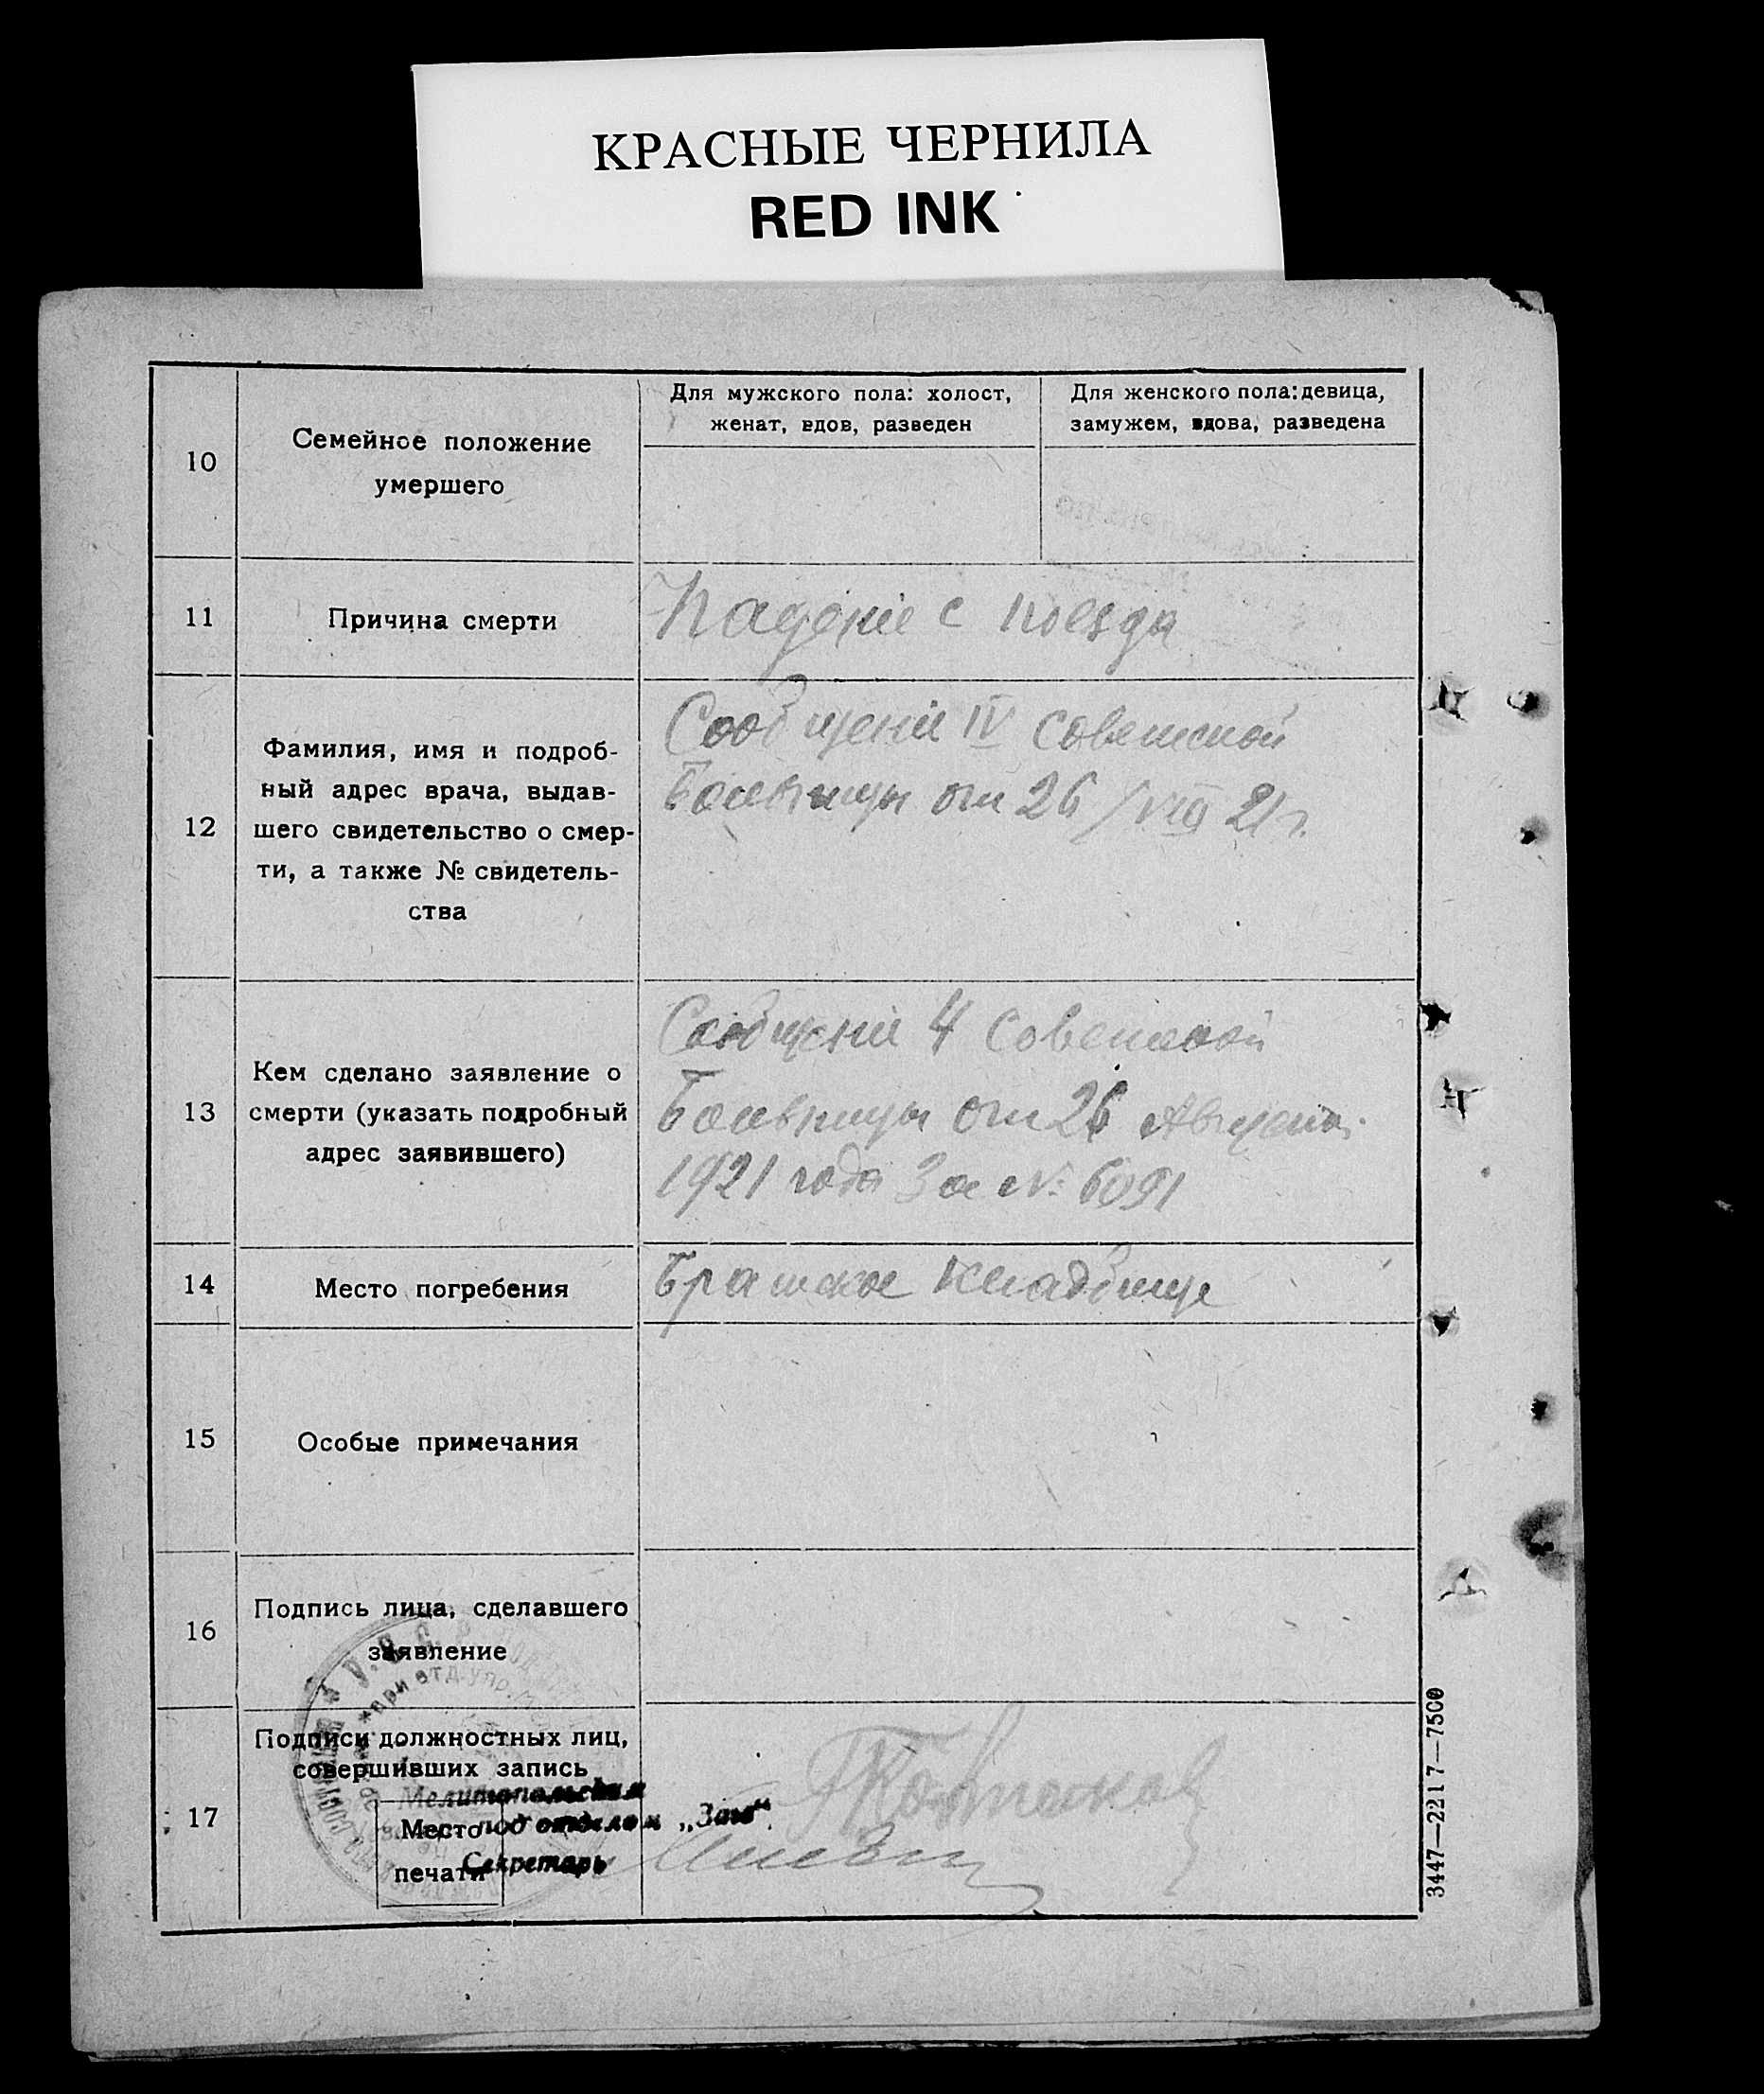 КРАСНЫЕ ЧЕРНИЛА
RED INK
10
Семейное положение
умершего
Для мужского пола: холост,
женат, вдов, разведен
Для женского пола: девица,
замужем, вдова, разведена
11
Причина смерти
Падение с поезда
12
Фамилия, имя и подроб-
ный адрес врача, выдав-
шего свидетельство о смер-
ти, а также № свидетель-
ства
Сообщение IV советской
Больницы от 26/VIII 21 г.
13
Кем сделано заявление о
смерти (указать подробный
адрес заявившего)
Сообщение 4 Советской
Больницы от 26 Августа
1921 года За № 6091
14
Место погребения
Братское Кладбище
15
Особые примечания
16
Подпись лица, сделавшего
заявление
17
Подписи должностных лиц,
совершивших запись
Мелитопольским
подотделом „Загс“
Секретарь
Место
печати
3447—2217—7500